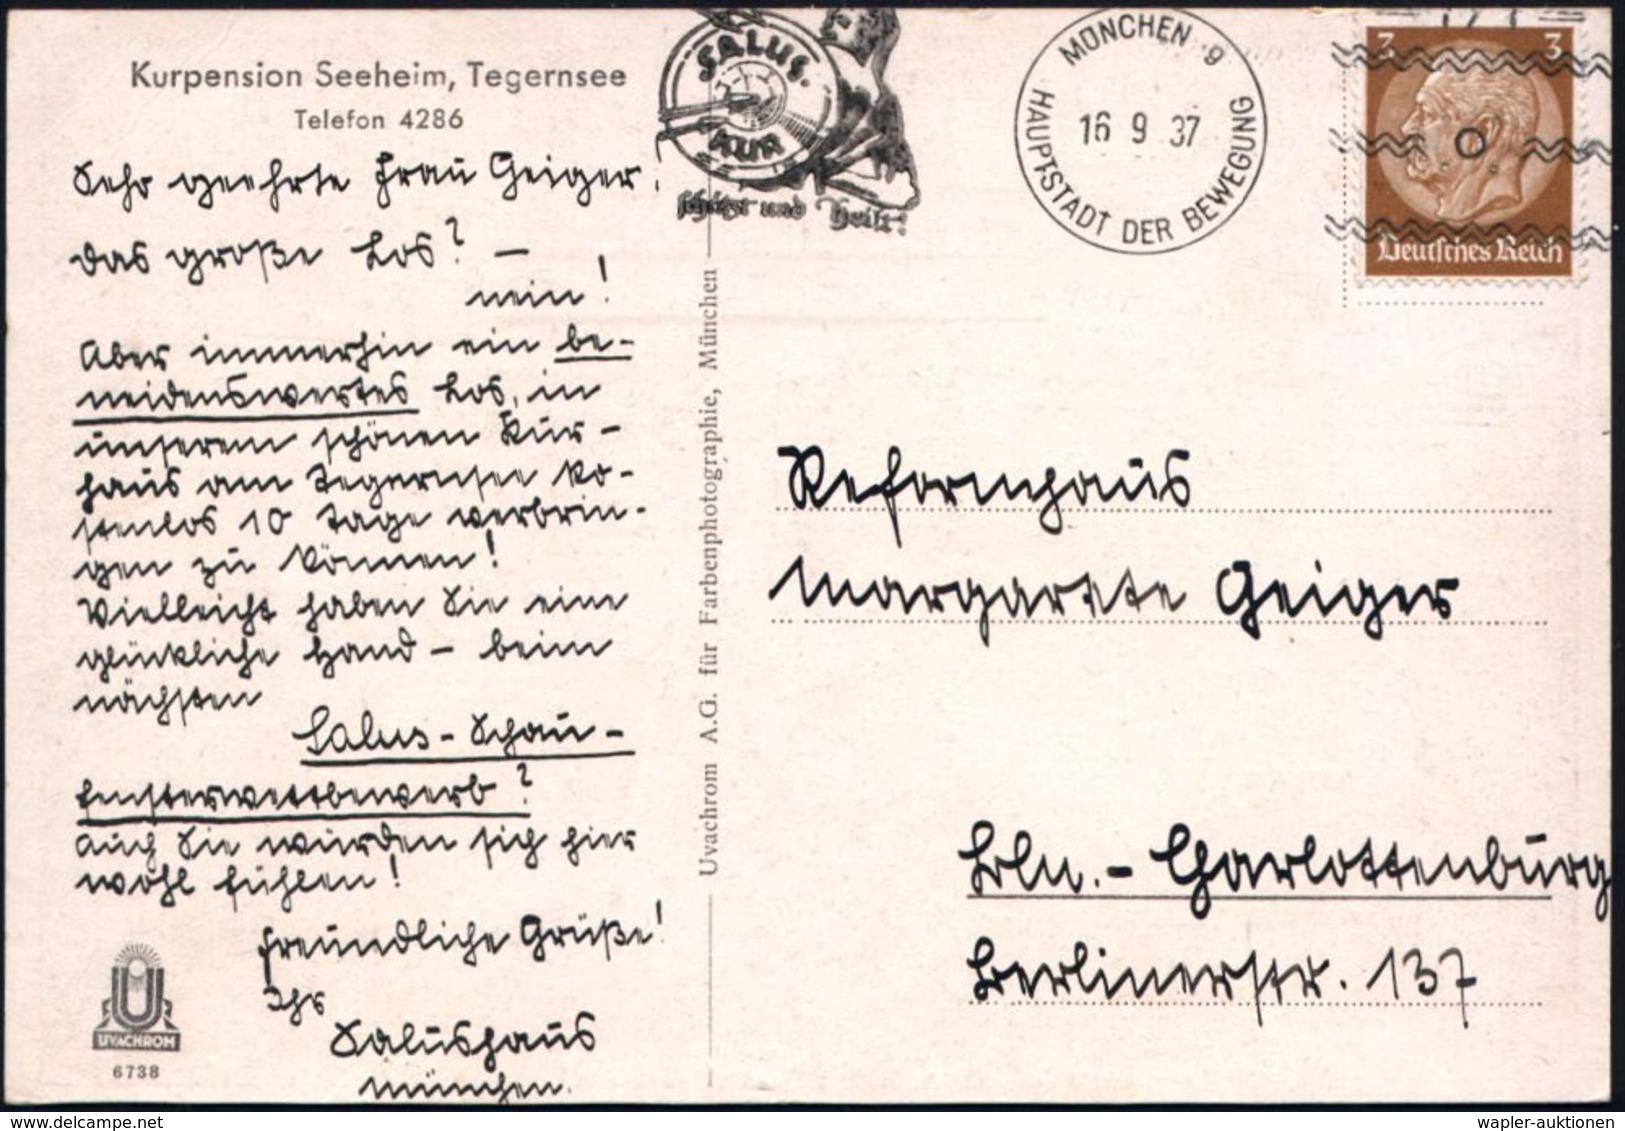 Kurpension Seeheim, Tegernsee
Telefon 4286
Sehr geehrte Frau Geiger,
das große Los? –
nein!
Aber immerhin ein be-
neidenswertes Los, in
unserem schönen Kur-
haus am Tegernsee ko-
stenlos 10 Tage verbrin-
gen zu können!
Vielleicht haben Sie eine
glückliche Hand – beim
nächsten
Salus-Schau-
fensterwettbewerb?
Auch Sie würden sich hier
wohl fühlen!
Freundliche Grüße!
Ihr
Salushaus
München.
UVACHROM
6738
Uvachrom A.G. für Farbenphotographie, München
SALUS-
KUR
schützt und heilt!
MÜNCHEN 9
16 9 37
HAUPTSTADT DER BEWEGUNG
3 3
Deutsches Reich
Reformhaus
Margarete Geiger
Bln.-Charlottenburg
Berlinerstr. 137
wapler-auktionen